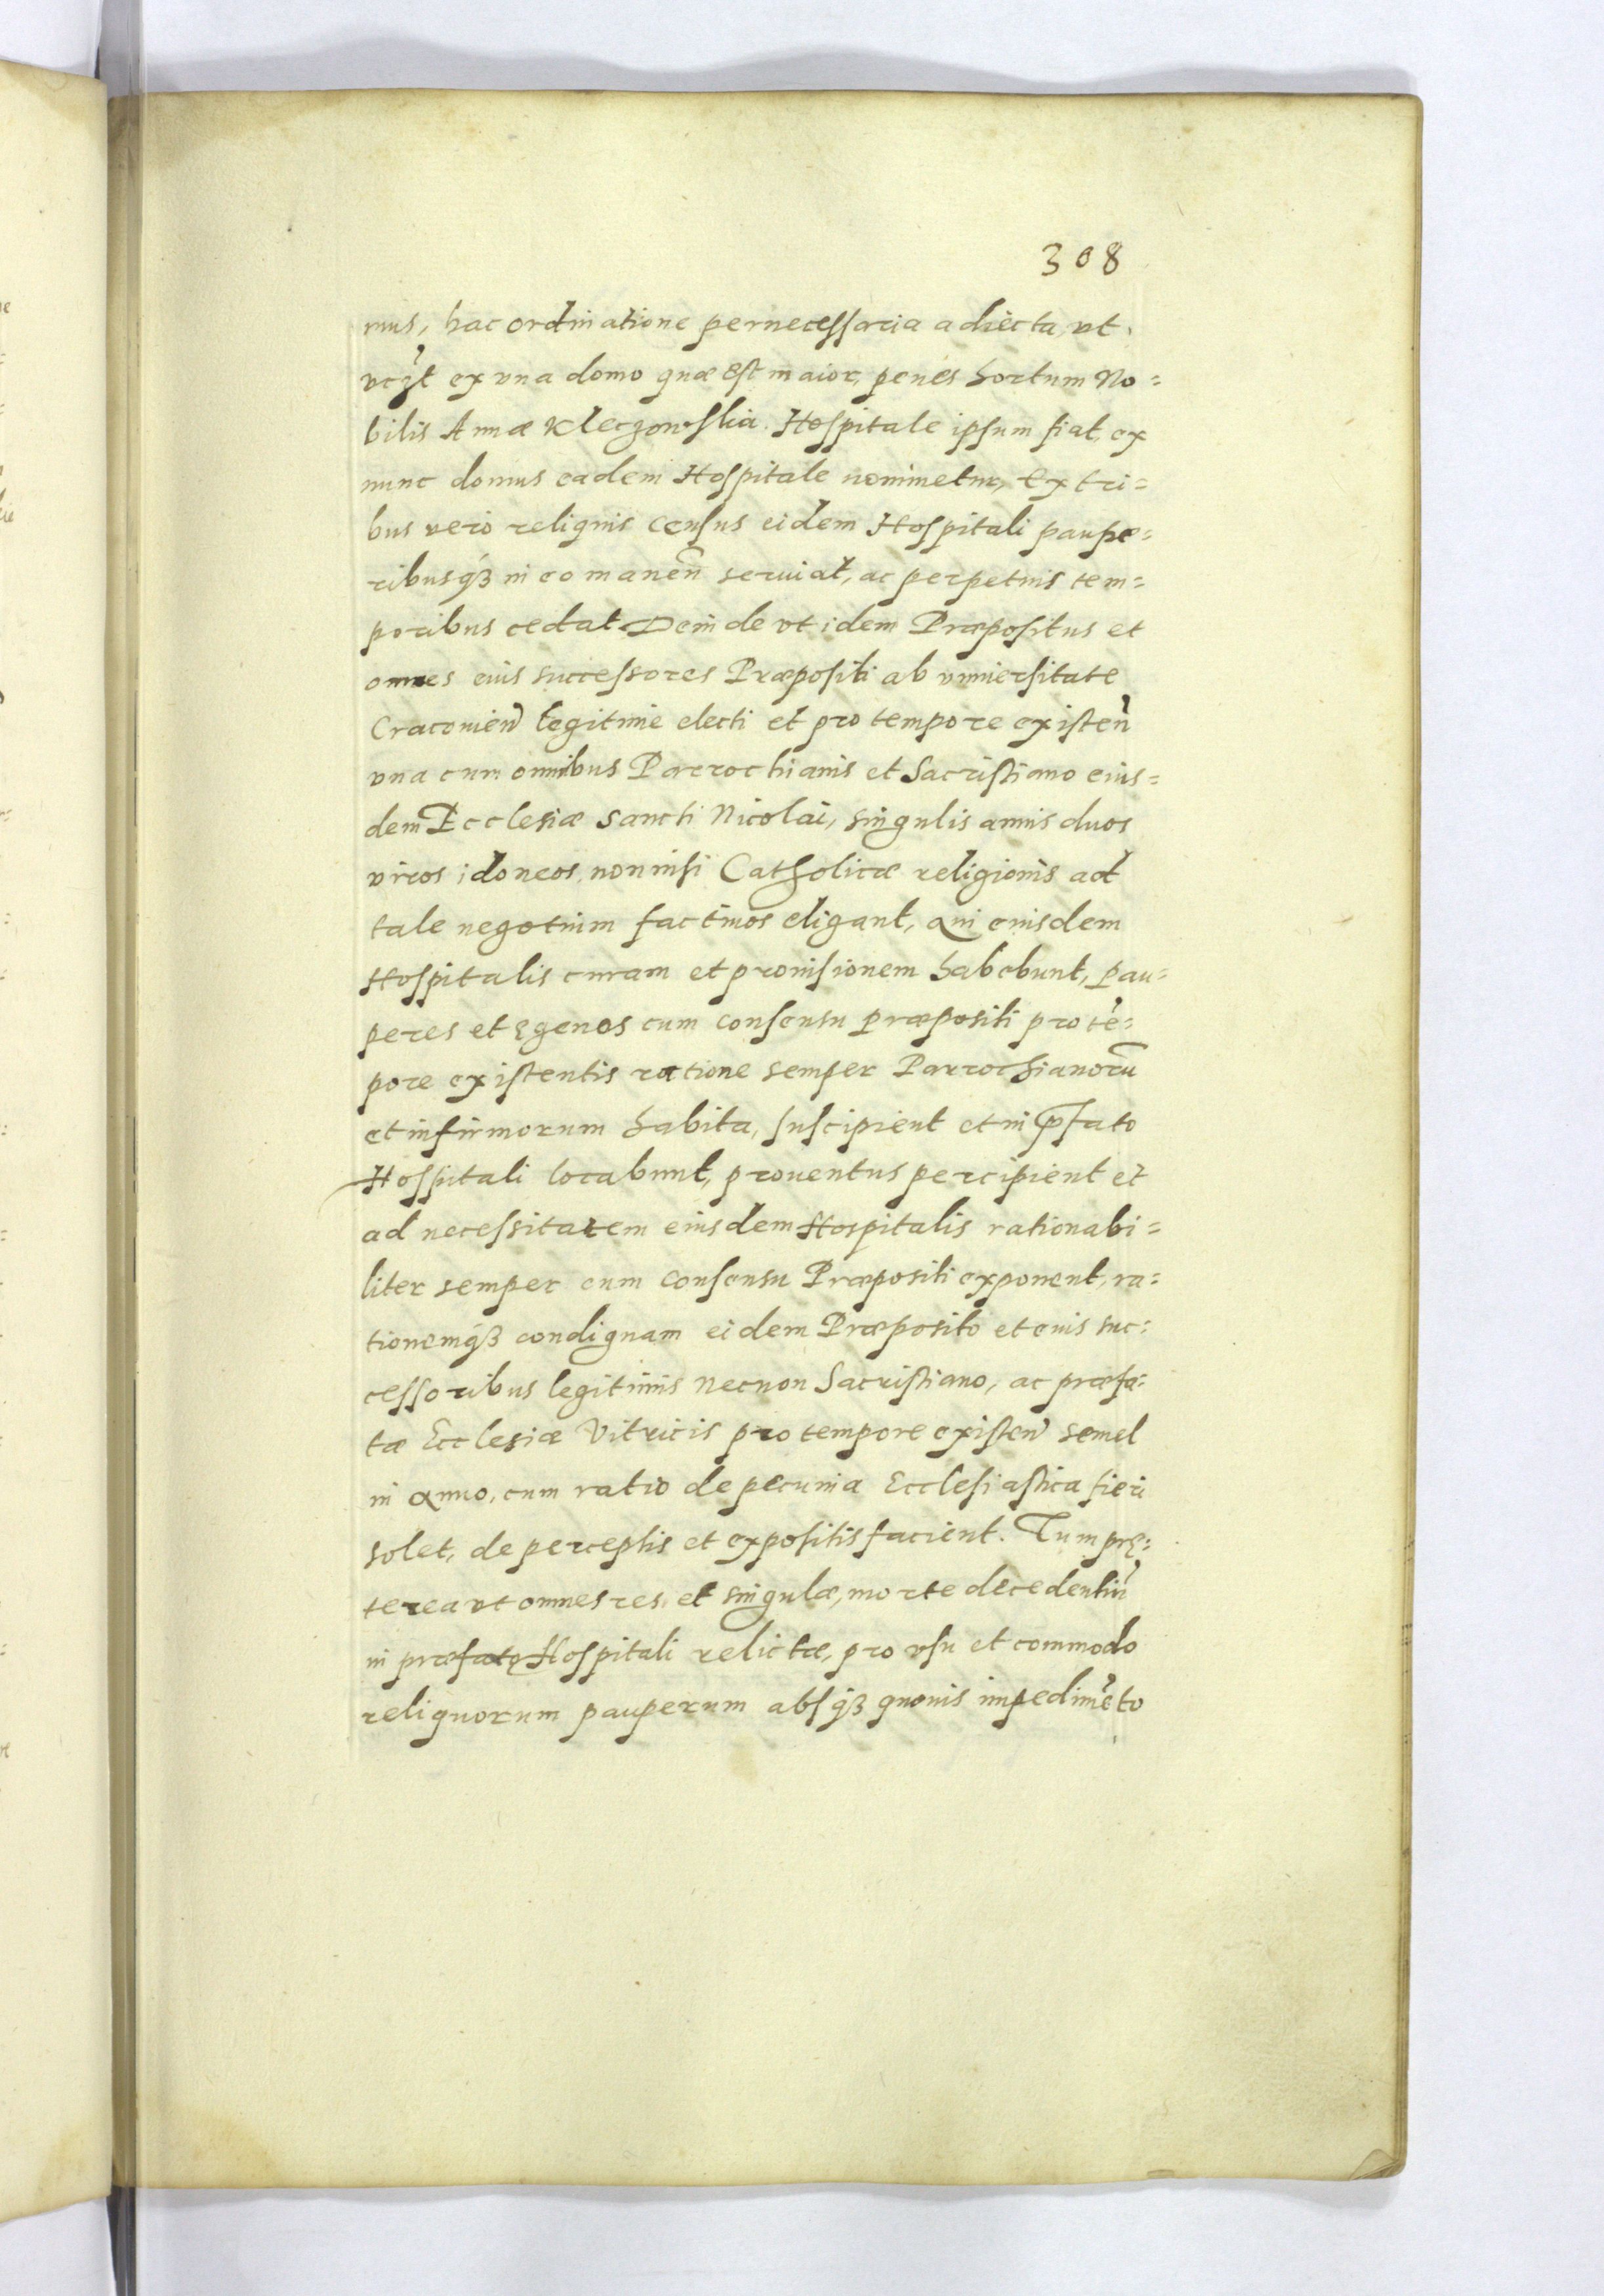 308
mus, hac ordinatione pernecessaria adiecta, ut
ex una domo quæ est maior, penes hortum No=
bilis Annæ Kleczowska. Hospitale ipsum fiat, ex
nunc domus eadem Hospitale nominetur, Ex tri=
bus vero reliquis Census eidem Hospitali paupe=
ribusq́ꝫ in eo manen̄ seruiat, ac perpetuis tem=
poribus cedat Deinde ut idem Præpositus et
omnes eius successores Præpositi ab vniuersitate
Cracouien̄ legitime electi et pro tempore existen̄
vna cum omnibus Parrochianis et Sacristiano eius=
dem Ecclesiæ Sancti Nicolai, singulis annis duos
viros idoneos, non nisi Catholicæ religionis ad
tale negotium factiuos eligant, Qui eiusdem
Hospitalis curam et prouisionem habebunt, pau=
peres et Egenos cum consensu præpositi pro tē=
pore existentis ratione semper Parrochianorū
et infirmorum habita, suscipient et in p̄fato
Hospitali locabunt, prouentus percipient et
ad necessitatem eiusdem Hospitalis rationabi=
liter semper cum consensu Præpositi exponent, ra=
tionemq́ꝫ condignam eidem Præposito et eius suc=
cessoribus legitimis Necnon Sacristiano, ac præfa=
tæ Ecclesiæ Vitricis pro tempore existen̄ semel
in anno, cum ratio de pecunia Ecclesiastica fieri
solet, de perceptis et expositis facient. Tum prę=
terea ut omnes res et singulæ, morte decedentiū
in præfato Hospitali relictæ, pro usu et commodo
reliquorum pauperum absq́ꝫ quouis impedimēto